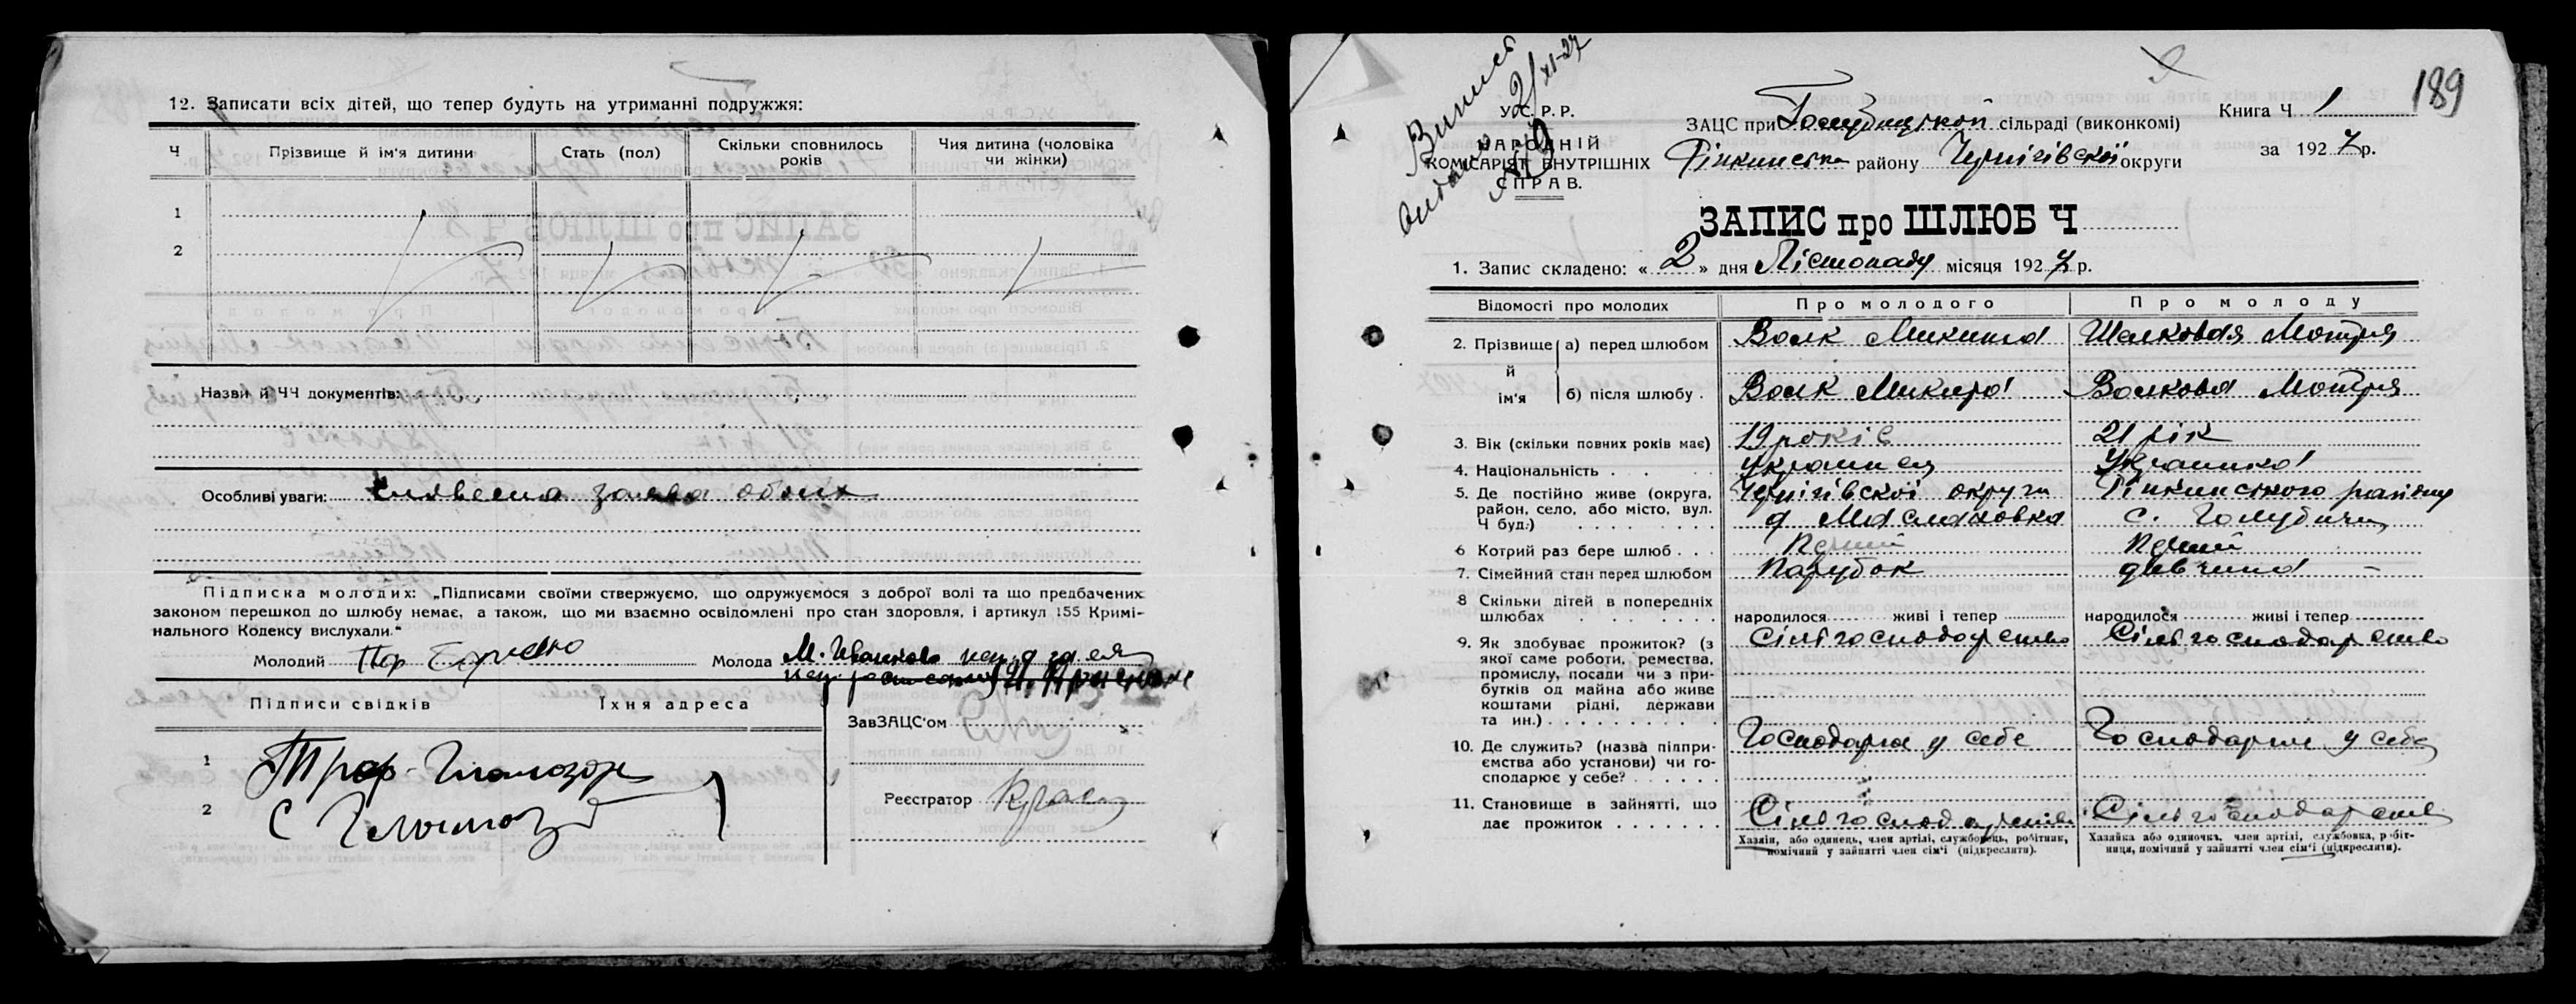 12. Записати всіх дітей, що тепер будуть на утриманні подружжя:
Ч
Прізвище й ім'я дитини
Стать (пол)
Скільки сповнилось років
Чия дитина (чоловіка чи жінки)
1
2
Назви й ЧЧ документів:
Особливі уваги: Словесна заява обоих
Підписка молодих: „Підписами своїми ствержуємо, що одружуємося з доброї волі та що предбачених
законом перешкод до шлюбу немає, а також, що ми взаємно освідомлені про стан здоровля, і артикул 155 Кримі-
нального Кодексу вислухали."
Молодий
Молода М. Иванкова
Підписи свідків
Їхня адреса
ЗавЗАЦС'ом
1
2 С
Реєстратор
189
Випись
2/XI-27
У.С.Р.Р.
НАРОДНІЙ
КОМІСАРІЯТ ВНУТРІШНІХ
СПРАВ.
ЗАЦС при Голубицькой сільраді (виконкомі)
Ріпкинська району Чернігівскої округи
Книга Ч 1
за 1927 р.
ЗАПИС про ШЛЮБ Ч
1. Запис складено: « 2 » дня Лістопаду місяця 1927 р.
Відомості про молодих
Про молодого
Про молоду
2. Прізвище й ім'я
а) перед шлюбом
Волк Микита
Шелковая Мотря
б) після шлюбу
Волк Микита
Волкова Мотря
3. Вік (скільки повних років має)
19 років
21 рік
4. Національність
Українец
Українка
5. Де постійно живе (округа,
район, село, або місто, вул.
Ч буд.)
Чернігівскої округи
д Маслаковка
Ріпкинського району
с. Голубичи
6 Котрий раз бере шлюб
Перший
Перший
7. Сімейний стан перед шлюбом
Парубок
дивчина
8 Скільки дітей в попередніх
шлюбах
народилося живі і тепер
народилося живі і тепер
9. Як здобуває прожиток? (з
якої саме роботи, ремества,
промислу, посади чи з при-
бутків од майна або живе
коштами рідні, держави
та ин.)
Сільгосподарство
Сільгосподарство
10. Де служить? (назва підпри-
ємства або установи) чи го-
сподарює у себе?
Господарює у себе
Господарює у себе
11. Становище в зайнятті, що
дає прожиток
Сільгосподарство
Сільгосподарство
Хазяїн, або одинець, член артілі, службовець, робітник,
помічний у зайнятті член сім'ї (підкреслити).
Хазяйка або одиночка, член артілі, службовка, робіт-
ниця, помічний у зайнятті член сім'ї (підкреслити).